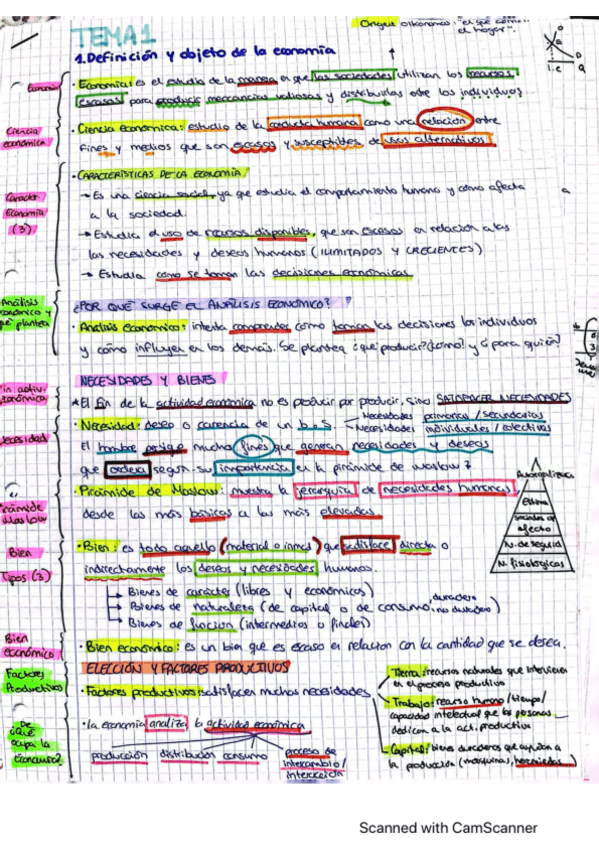 TEMA 1
Origen oikonomos: "el que com...
el hogar".
1. Definición y objeto de la economía
Economía
· Economía: es el estudio de la manera en que las sociedades utilizan los recursos
escasos para producir mercancías valiosas y distribuirlas entre los individuos
Ciencia
económica
· Ciencia económica: estudio de la conducta humana como una relación entre
fines y medios que son escasos y susceptibles de usos alternativos
Caracter.
Economía
(3)
· CARACTERÍSTICAS DE LA ECONOMÍA
→ Es una ciencia social, ya que estudia el comportamiento humano y como afecta
a la sociedad.
→ Estudia el uso de recursos disponibles, que son ESCASOS en relación a las
las necesidades y deseos humanos (ILIMITADOS Y CRECIENTES)
→ Estudia como se toman las decisiones económicas
Análisis
económico y
qué plantea
¿POR QUÉ SURGE EL ANÁLISIS ECONÓMICO?
· Analisis economico: intenta comprender como toman las decisiones los individuos
y cómo influyen en los demás. Se plantea ¿qué producir? ¿cómo? y ¿para quién?
NECESIDADES Y BIENES
Fin activ.
económica
* El fin de la actividad economica no es producir por producir, sino SATISFACER NECESIDADES
Necesidad
· Necesidad: deseo o carencia de un b.o.S.
Necesidades primarias / secundarias
Necesidades individuales / colectivas
El hombre persigue muchos fines que generan necesidades y deseos
que ordena según su importancia en la pirámide de Maslow
Pirámide
Maslow
· Pirámide de Maslow: muestra la jerarquía de necesidades humanas,
desde las más básicas a las más elevadas
Autorrealización
Estima
sociales de
afecto
N. de segurid
N. fisiológicas
Bien
Tipos (3)
· Bien: es todo aquello (material o inmat) que satisface directa o
indirectamente los deseos y necesidades humanos.
Bienes de carácter (libres y económicos)
Bienes de naturaleza (de capital o de consumo
duradero
no duradero)
Bienes de función (intermedios o finales)
Bien
económico
· Bien económico: es un bien que es escaso en relacion con la cantidad que se desea.
ELECCIÓN Y FACTORES PRODUCTIVOS
Factores
Productivos
· Factores productivos: satisfacen muchas necesidades
Tierra: recursos naturales que intervienen
en el proceso productivo
- Trabajo: recurso humano / tiempo /
capacidad intelectual que las personas
dedican a la act. productiva
- Capital: bienes duraderos que ayudan a
la producción (maquinas, herramientas...)
De
¿Qué
ocupa la
Economía?
· La economía analiza la actividad económica
producción distribución consumo proceso de
intercambio /
interacción
Scanned with CamScanner